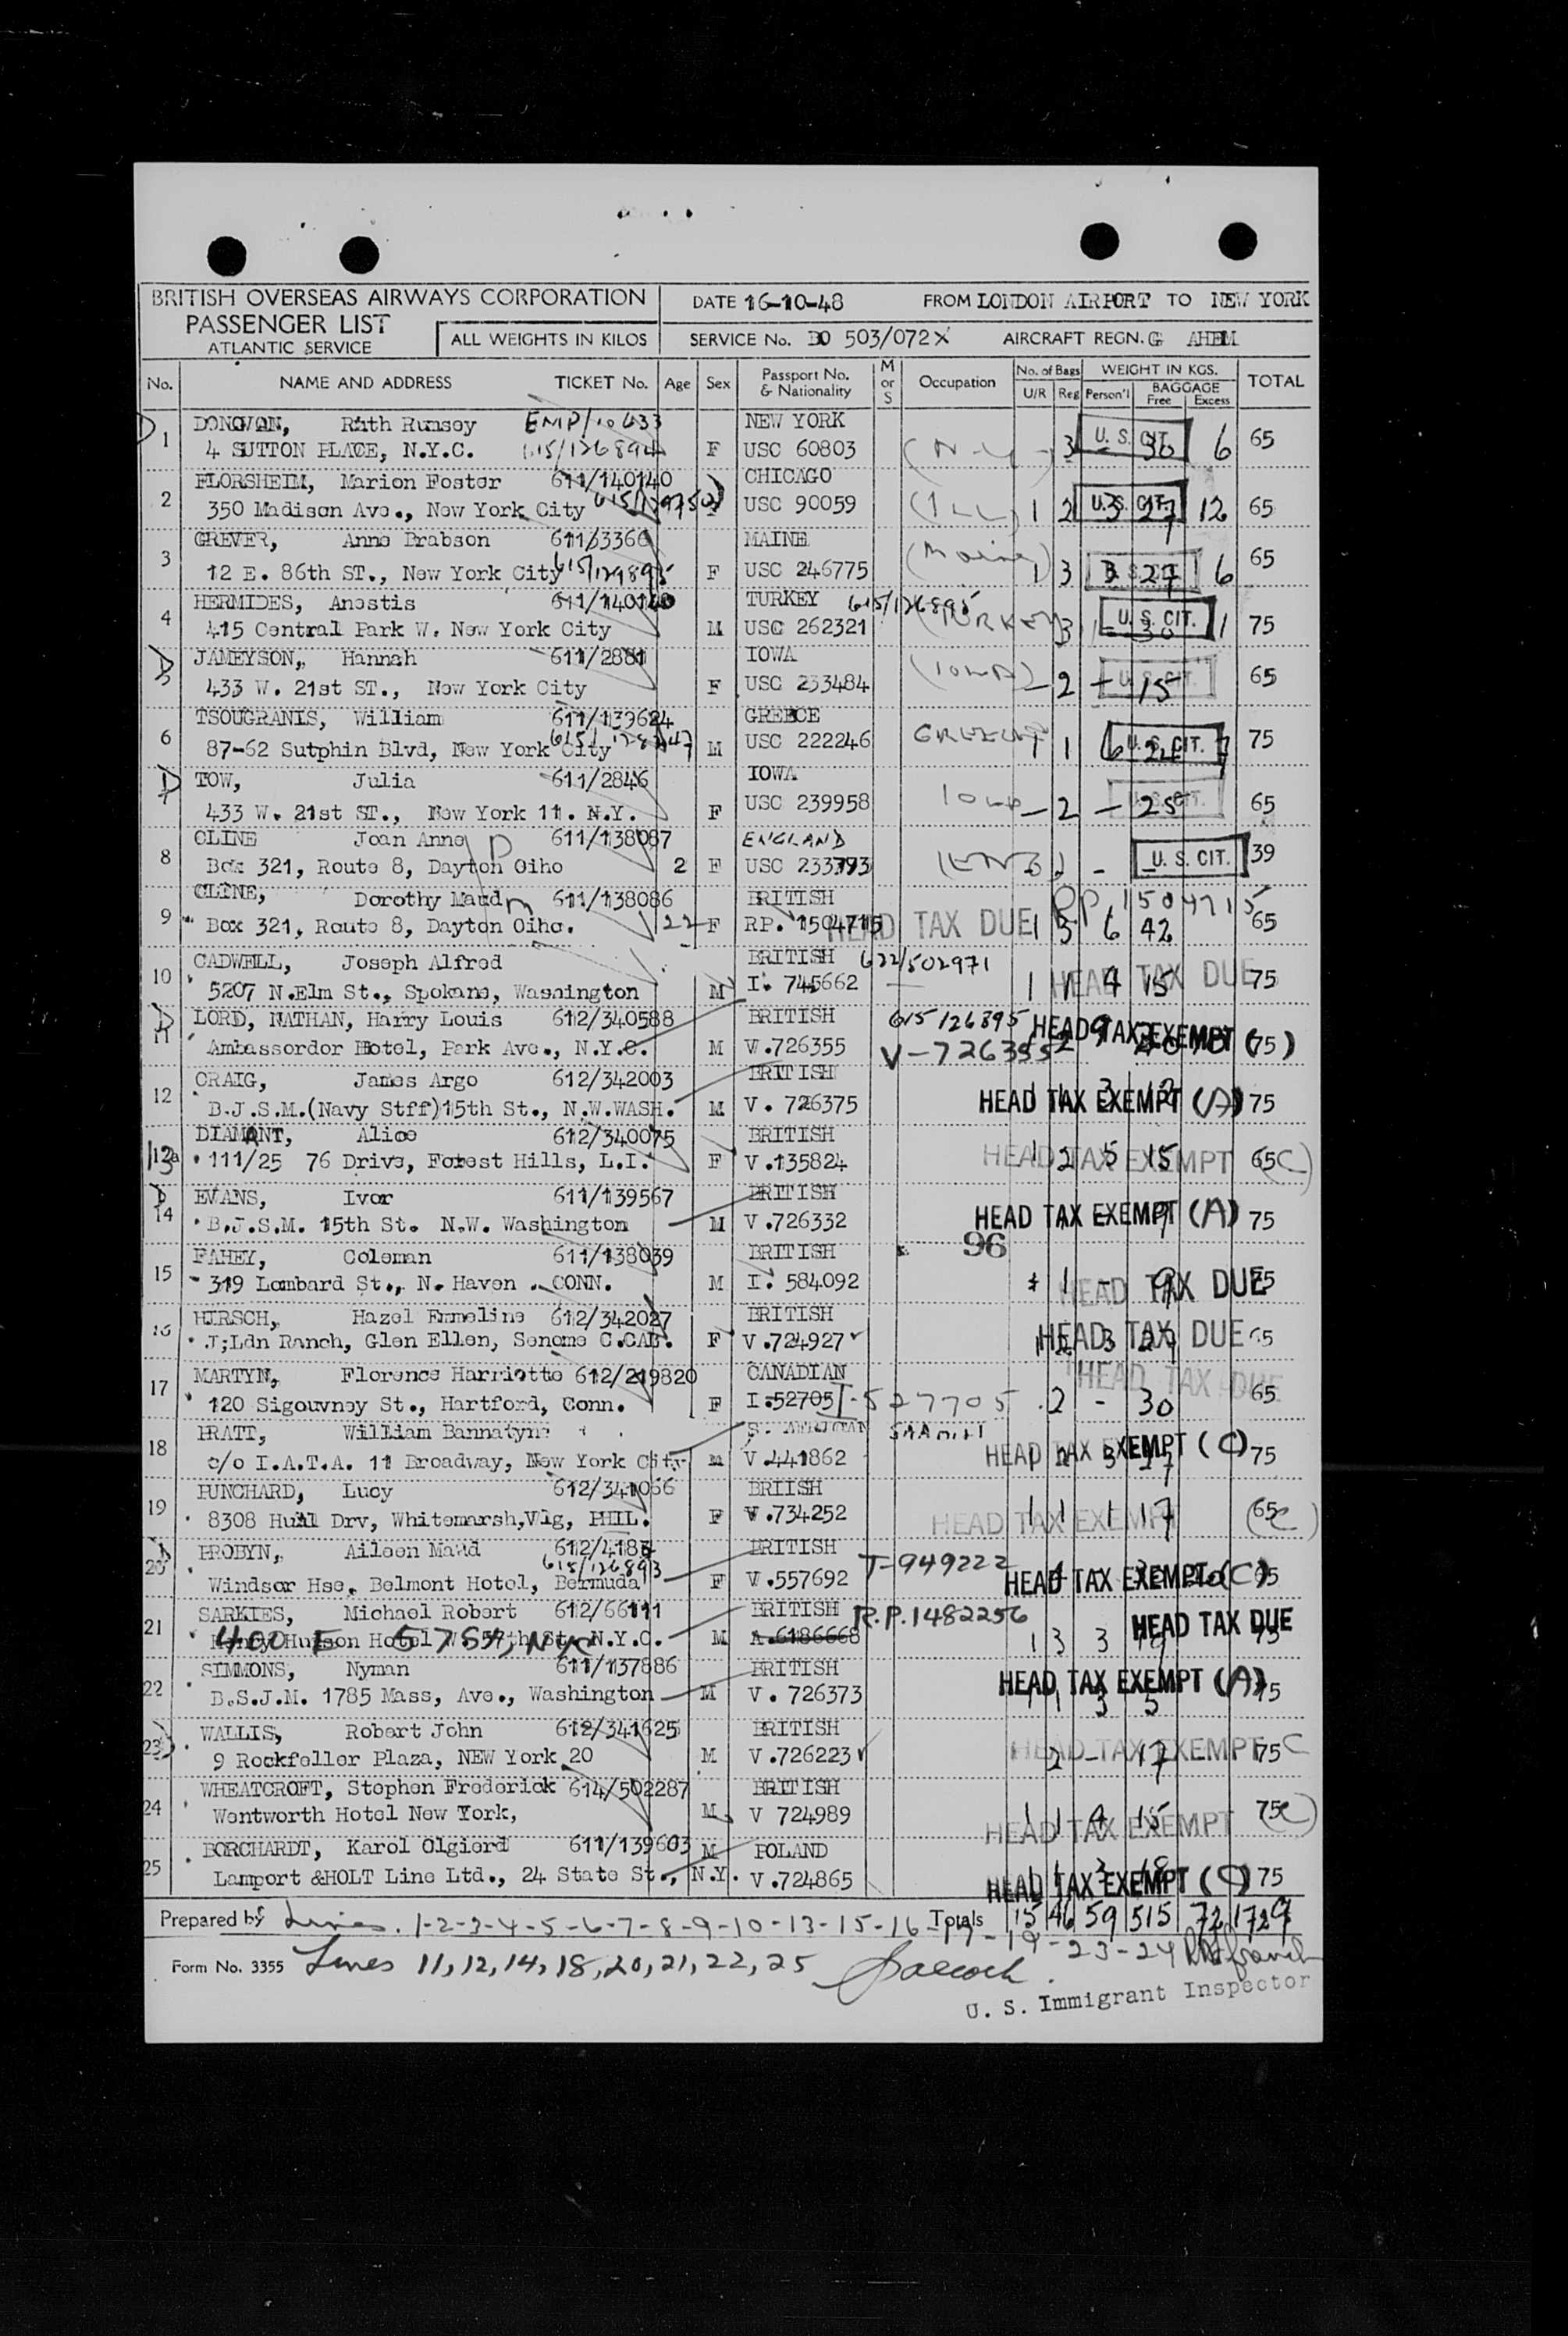 BRITISH OVERSEAS AIRWAYS CORPORATION
PASSENGER LIST
ATLANTIC SERVICE
ALL WEIGHTS IN KILOS
DATE 16-10-48 FROM LONDON AIRPORT TO NEW YORK
SERVICE No. BO 503/072X AIRCRAFT REGN. G AHEM
No. NAME AND ADDRESS TICKET No. Age Sex Passport No. & Nationality M or S Occupation No. of Bags U/R Reg WEIGHT IN KGS. Person'l BAGGAGE Free Excess TOTAL
DONOVAN, Ruth Rumsey EMP/10633 NEW YORK
1 4 SUTTON PLACE, N.Y.C. 615/126894 F USC 60803 (N.Y.) 3 - U. S. CIT. 30 6 65
FLORSHEIM, Marion Foster 611/140140 CHICAGO
2 350 Madison Ave., New York City USC 90059 (ILL) 1 2 U. S. CIT. 12 65
GREVER, Anne Brabson 611/3366 MAINE
3 12 E. 86th ST., New York City 615/129895 F USC 246775 (Maine) 1 3 3 27 6 65
HERMIDES, Anostis 611/140140 TURKEY 615/126895
4 415 Central Park W. New York City M USC 262321 (TURKEY) 3 - U. S. CIT. 30 1 75
JAMEYSON, Hannah 611/2881 IOWA
5 433 W. 21st ST., New York City F USC 233484 (IOWA) - 2 - U. S. CIT. 15 65
TSOUGRANIS, William 611/139624 GREECE
6 87-62 Sutphin Blvd, New York City M USC 222246 GREECE 1 1 6 U. S. CIT. 24 75
TOW, Julia 611/2846 IOWA
7 433 W. 21st ST., New York 11. N.Y. F USC 239958 Iowa - 2 - U. S. CIT. 25 65
CLINE Joan Anne 611/138087 ENGLAND
8 Box 321, Route 8, Dayton Oiho 2 F USC 233793 (ENG) - U. S. CIT. 39
CLINE, Dorothy Maud 611/138086 BRITISH RP. 1504715
9 Box 321, Route 8, Dayton Oiho. 22 F RP. 1504715 HEAD TAX DUE 1 3 6 42 65
CADWELL, Joseph Alfred BRITISH 622/502971
10 5207 N.Elm St., Spokane, Wasnington M I. 745662 1 1 4 15 HEAD TAX DUE 75
LORD, NATHAN, Harry Louis 612/340588 BRITISH 615 126895
11 Ambassordor Hotel, Park Ave., N.Y.C. M V.726355 V-726355 2 9 HEAD TAX EXEMPT 75
CRAIG, James Argo 612/342003 BRITISH
12 B.J.S.M.(Navy Stff)15th St., N.W.WASH. M V. 726375 HEAD TAX EXEMPT (A) 75
DIAMANT, Alice 612/340075 BRITISH
13 111/25 76 Drive, Forest Hills, L.I. F V.135824 HEAD TAX EXEMPT 1 2 5 15 65 (C)
EVANS, Ivor 611/139567 BRITISH
14 B.J.S.M. 15th St. N.W. Washington M V.726332 HEAD TAX EXEMPT (A) 75
FAHEY, Coleman 611/138039 BRITISH 96
15 319 Lombard St., N. Haven . CONN. M I. 584092 1 - 9 HEAD TAX DUE 75
HIRSCH, Hazel Emmeline 612/342027 BRITISH
16 J;Ldn Ranch, Glen Ellen, Sonome C.CAL. F V.724927 HEAD TAX DUE 65
MARTYN, Florence Harriotte 612/219820 CANADIAN HEAD TAX DUE
17 120 Sigourney St., Hartford, Conn. F I.52705 I-527705 2 - 30 65
PRATT, William Bannatyne S. AFRICAN
18 c/o I.A.T.A. 11 Broadway, New York City M V.441862 HEAD TAX EXEMPT (C) 75
PUNCHARD, Lucy 612/341056 BRIISH
19 8308 Hull Drv, Whitemarsh,Vlg, PHIL. F V.734252 HEAD TAX EXEMPT 1 1 1 17 65 (C)
PROBYN, Aileen Maud 612/4184 BRITISH
20 Windsor Hse, Belmont Hotel, Bermuda 615/126893 F V.557692 T-949222 HEAD TAX EXEMPT (C) 65
SARKIES, Michael Robert 612/66111 BRITISH R.P.1482256
21 Henry Hudson Hotel W. 57th St, N.Y.C. 400 E 57 St, NYC M A.6186668 1 3 3 19 HEAD TAX DUE 75
SIMMONS, Nyman 611/137886 BRITISH
22 B.S.J.M. 1785 Mass, Ave., Washington M V. 726373 HEAD TAX EXEMPT (A) 1 1 3 5 75
WALLIS, Robert John 612/341625 BRITISH
23 9 Rockfeller Plaza, NEW York 20 M V.726223 HEAD TAX EXEMPT 2 - 17 75 C
WHEATCROFT, Stephen Frederick 614/502287 BRITISH
24 Wentworth Hotel New York, M V 724989 HEAD TAX EXEMPT 1 1 4 15 75 (C)
BORCHARDT, Karol Olgierd 611/139603 M POLAND
25 Lamport &HOLT Line Ltd., 24 State St., N.Y. V.724865 HEAD TAX EXEMPT (C) 1 1 3 18 75
Prepared by Lines. 1-2-3-4-5-6-7-8-9-10-13-15-16-17-19-23-24 Totals 15 46 59 515 72 1729
Form No. 3355 Lines 11,12,14,18,20,21,22,25
U. S. Immigrant Inspector